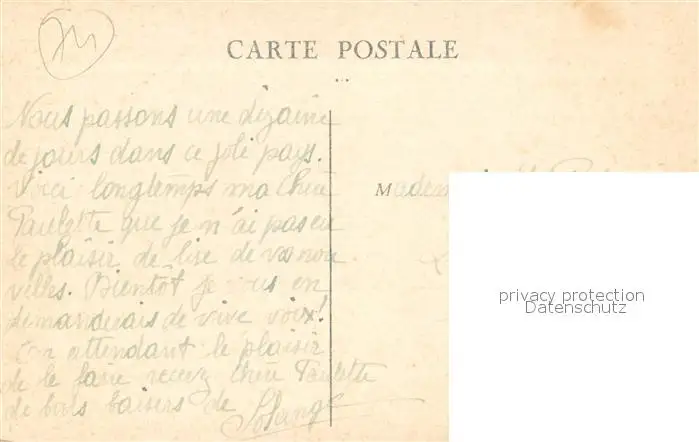 74
CARTE POSTALE
Nous passons une dizaine
de jours dans ce joli pays.
Voici longtemps ma chère
Paulette que je n'ai pas eu
le plaisir de lire de vos nou
velles. Bientôt je vous en
demanderais de vive voix!
En attendant le plaisir
de le faire recevez chère Paulette
de bons baisers de Solange
privacy protection
Datenschutz